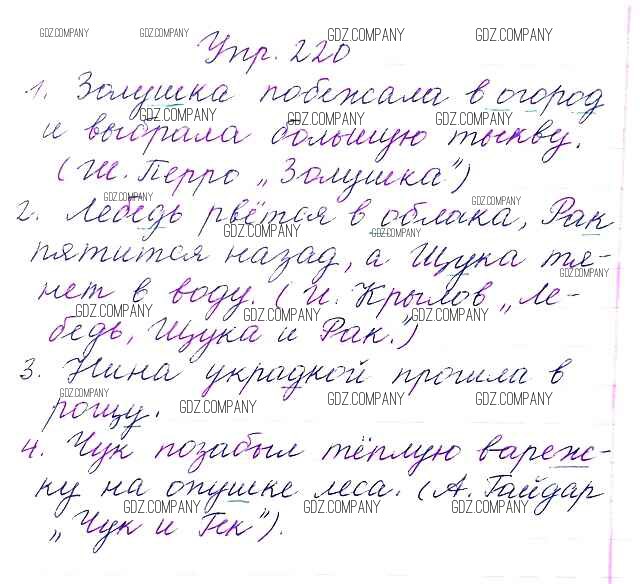 Упр. 220
1. Золушка побежала в огород
и выбрала большую тыкву.
(Ш. Перро „Золушка")
2. Лебедь рвётся в облака, Рак
пятится назад, а Щука тя-
нет в воду. (И. Крылов „Ле-
бедь, Щука и Рак.")
3. Нина украдкой прошла в
рощу.
4. Чук позабыл тёплую вареж-
ку на опушке леса. (А. Гайдар
„Чук и Гек").
GDZ.COMPANY GDZ.COMPANY GDZ.COMPANY GDZ.COMPANY
GDZ.COMPANY GDZ.COMPANY GDZ.COMPANY
GDZ.COMPANY GDZ.COMPANY
GDZ.COMPANY GDZ.COMPANY
GDZ.COMPANY
GDZ.COMPANY GDZ.COMPANY GDZ.COMPANY
GDZ.COMPANY GDZ.COMPANY GDZ.COMPANY GDZ.COMPANY
GDZ.COMPANY GDZ.COMPANY GDZ.COMPANY